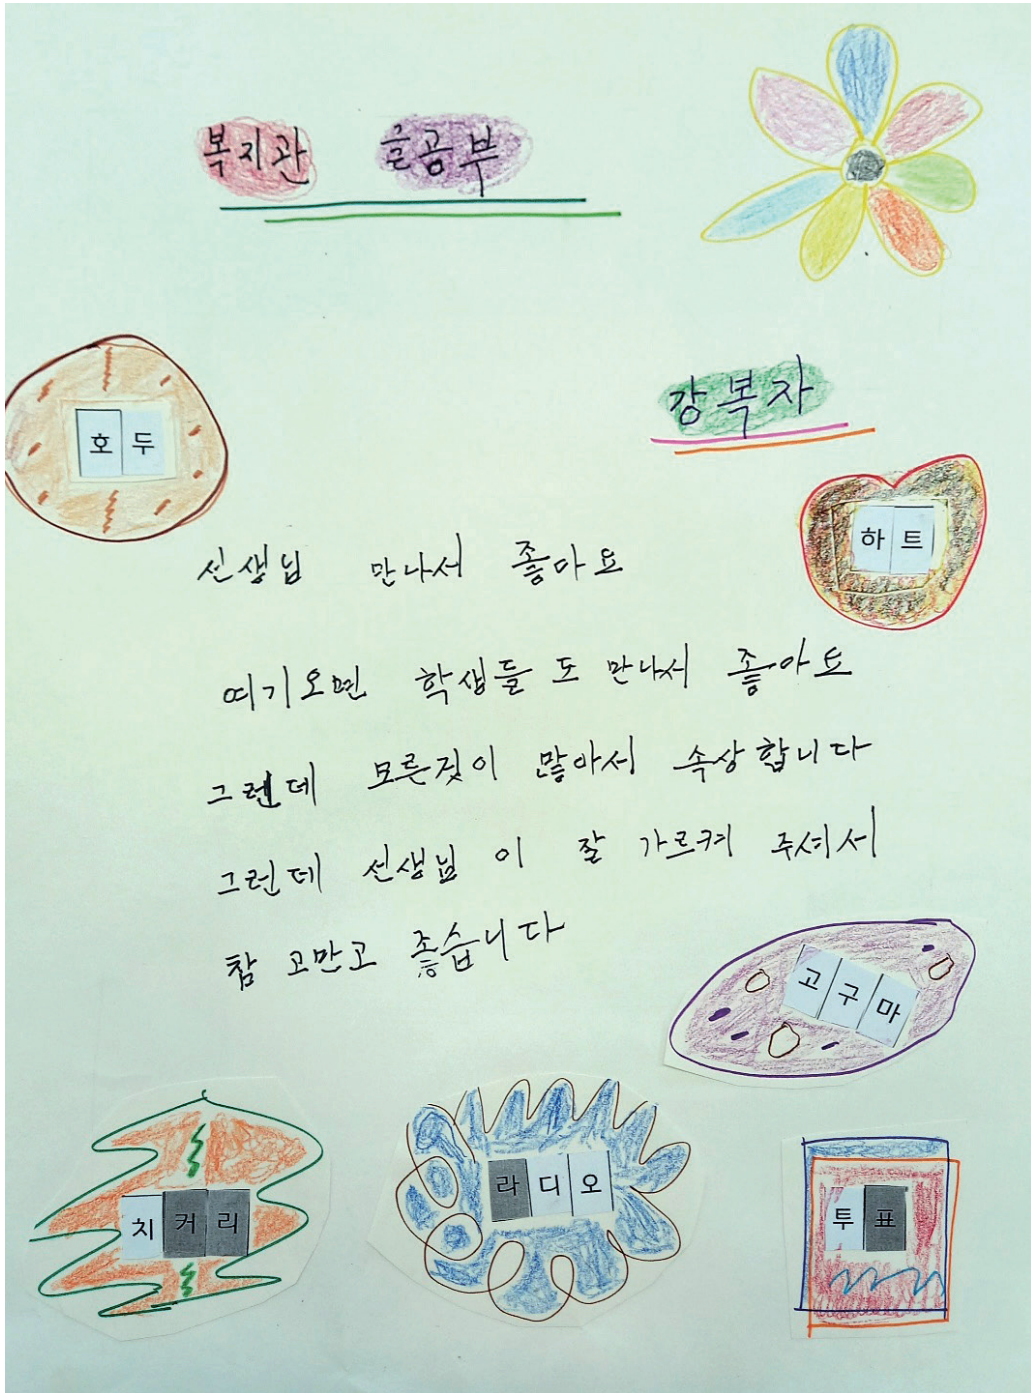 복지관 글공부
강복자
호두
하트
선생님 만나서 좋아요
여기오면 학생들 도 만나서 좋아요
그런데 모른것이 많아서 속상합니다
그런데 선생님 이 잘 가르켜 주셔서
참 고만고 좋습니다
고구마
치커리
라디오
투표